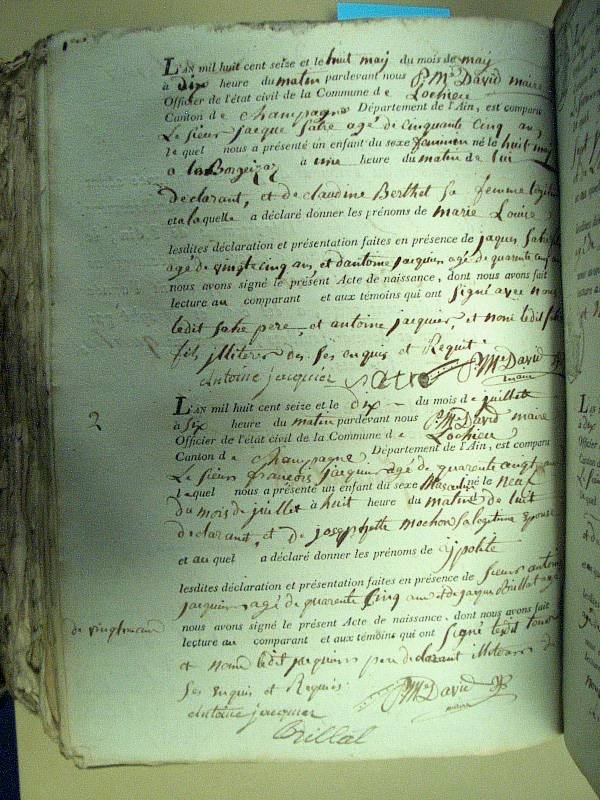 L'AN mil huit cent seize et le huit maj du mois de maj
à dix heure du matin pardevant nous P. Ms David maire
Officier de l'état civil de la Commune de Lochieu
Canton de Champagne Département de l'Ain, est comparu
Le Sieur jacque agé de cinquante cinq an,
lequel nous a présenté un enfant du sexe feminin né le huit maj
a à une heure du matin de lui
declarant, et de claudine Berthet Sa femme
et a laquelle a déclaré donner les prénoms de marie Louise
lesdites déclaration et présentation faites en présence de jaques
agé de vingt cinq ans, et d'antoine jacquier agé de quarente
nous avons signé le présent Acte de naissance, dont nous avons fait
lecture au comparant et aux témoins qui ont signé avec nous
ledit pere, et antoine jacquier, et non ledit
fils illiteré de Ses enquis et Requit.
Antoine jacquier P. Ms David
maire
2
L'AN mil huit cent seize et le dix du mois de juillette
à Six heure du matin pardevant nous P. Ms David maire
Officier de l'état civil de la Commune de Lochieu
Canton de Champagne Département de l'Ain, est comparu
Le Sieur françois jacquier agé de quarente
lequel nous a présenté un enfant du sexe Masculin né le Neuf
du mois de juillet à huit heure du matin de luit
declarant, et de josephette mochon Sa legitime Epouse
et au quel a déclaré donner les prénoms de ypolite
lesdites déclaration et présentation faites en présence de Sieur antoine
jacquier agé de quarente Cinq ans et de jaques Brillat agé
de vingt
nous avons signé le présent Acte de naissance, dont nous avons fait
lecture au comparant et aux témoins qui ont Signé ledit
et nom ledit jacquier pere declarant illiteré de
Ses Enquis et Requis.
Antoine jacquier P. Ms David
maire
Brillat